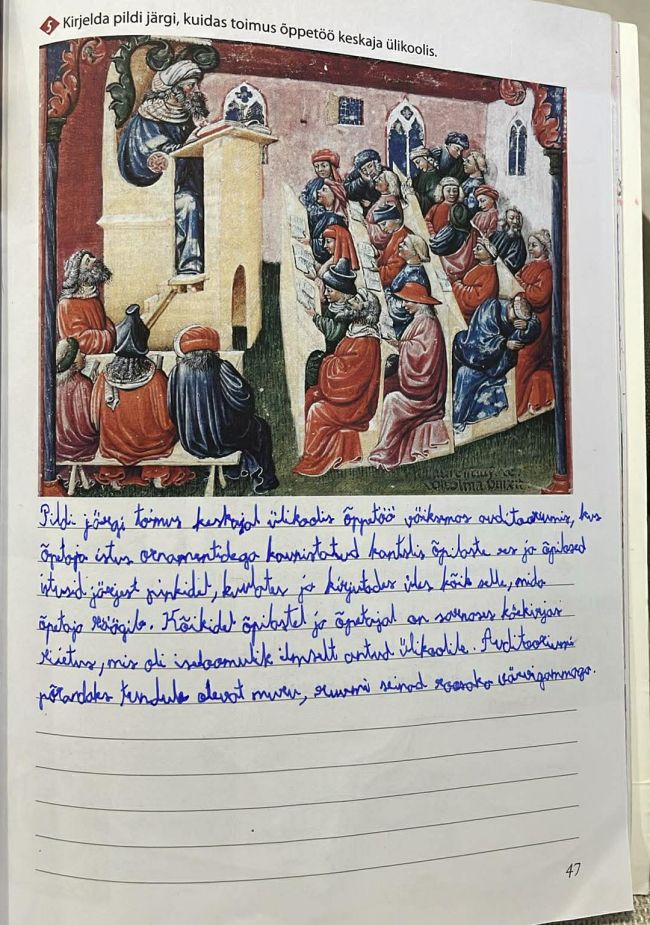 5 Kirjelda pildi järgi, kuidas toimus õppetöö keskaja ülikoolis.
Pildi järgi toimus keskajal ülikoolis õppetöö väiksemas auditooriumis, kus
õpetaja istus ornamentidega kaunistatud kantslis õpilaste ees ja õpilased
istusid järjest pinkidel, kuulates ja kirjutades üles kõik selle, mida
õpetaja räägib. Kõikidel õpilastel ja õpetajal on sarnases käekirjas
riietus, mis oli iseloomulik ilmselt antud ülikoolile. Auditooriumi
põrandaks tundub olevat muru, ruumi seinad roosaka värvigammaga.
47